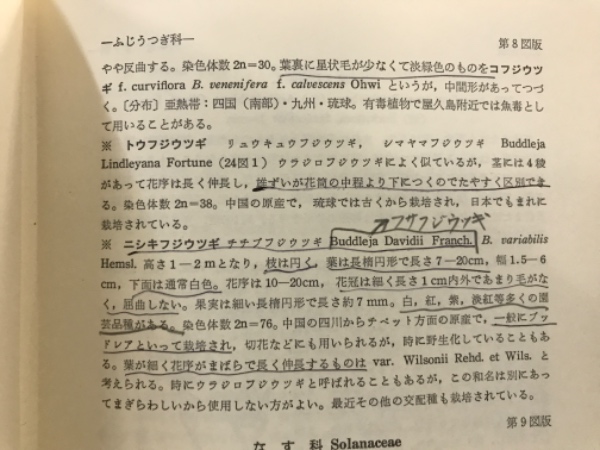 —ふじうつぎ科—
第8図版
やや反曲する。染色体数2n=30。葉裏に星状毛が少なくて淡緑色のものをコフジウツ
ギ f. curviflora B. venenifera f. calvescens Ohwi というが，中間形があってつづ
く。〔分布〕亜熱帯：四国（南部）・九州・琉球。有毒植物で屋久島附近では魚毒とし
て用いることがある。
※ トウフジウツギ リュウキュウフジウツギ，シマヤマフジウツギ Buddleja
Lindleyana Fortune（24図1）ウラジロフジウツギによく似ているが，茎には4稜
があって花序は長く伸長し，雄ずいが花筒の中程より下につくのでたやすく区別でき
る。染色体数2n=38。中国の原産で，琉球では古くから栽培され，日本でもまれに
栽培されている。
フサフジウツギ
※ ニシキフジウツギ チチブフジウツギ Buddleja Davidii Franch. B. variabilis
Hemsl. 高さ1—2mとなり，枝は円く，葉は長楕円形で長さ7—20cm，幅1.5—6
cm，下面は通常白色。花序は10—20cm，花冠は細く長さ1cm内外であまり毛がな
く，屈曲しない。果実は細い長楕円形で長さ約7mm。白，紅，紫，淡紅等多くの園
芸品種がある。染色体数2n=76。中国の四川からチベット方面の原産で，一般にブッ
ドレアといって栽培され，切花などにも用いられるが，時に野生化していることもあ
る。葉が細く花序がまばらで長く伸長するものは var. Wilsonii Rehd. et Wils. と
考えられる。時にウラジロフジウツギと呼ばれることもあるが，この和名は別にあっ
てまぎらわしいから使用しない方がよい。最近その他の交配種も栽培されている。
第9図版
なす科 Solanaceae